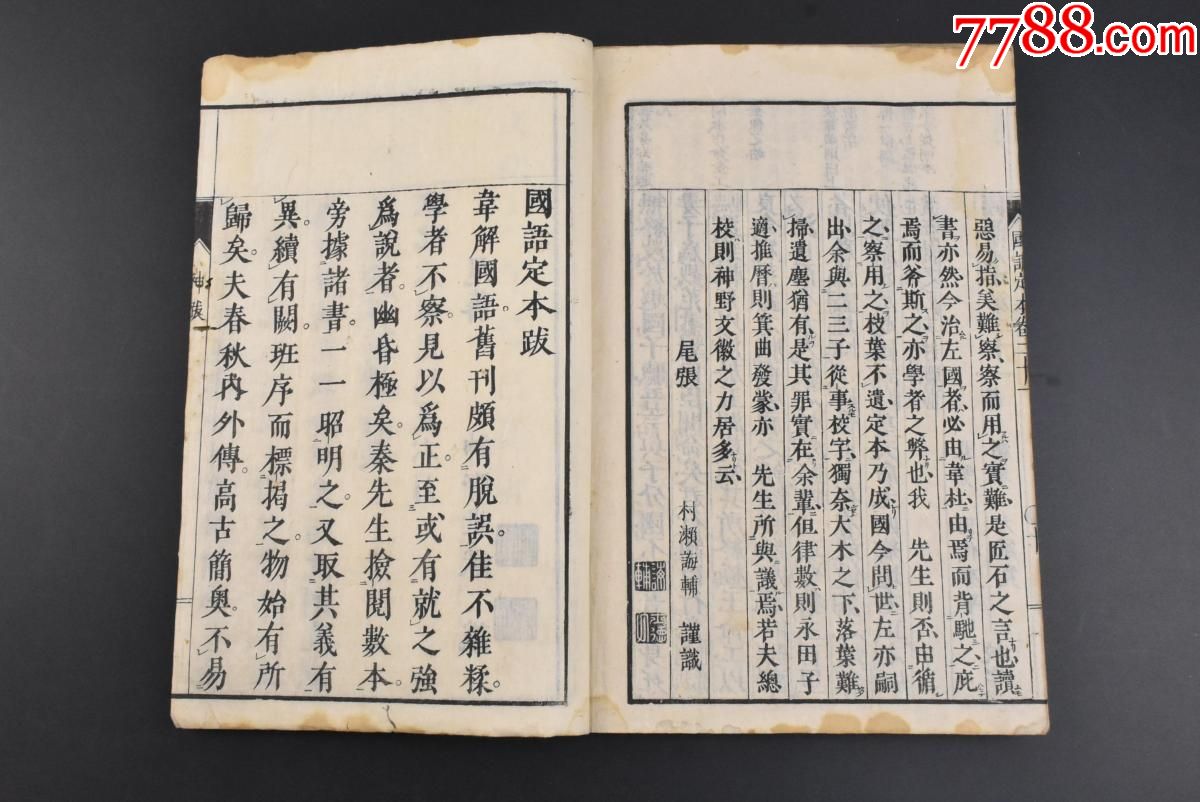 7788.com
惡易指矣難察察而用之實難是匠石之言也讀
書亦然今治左國者必由韋杜由焉而背馳之庇
焉而斧斯之亦學者之弊也我 先生則否由循
之察用之枝葉不遺定本乃成國今問世左亦嗣
出余與二三子從事校字獨奈大木之下落葉難
掃遺塵猶有是其罪實在余輩但律數則永田子
適推曆則箕曲發蒙亦 先生所與議焉若夫總
校則神野文徽之力居多云
尾張 村瀨誨輔 謹識
國語定本跋
韋解國語舊刊頗有脫誤佳不雜糅
學者不察見以為正至或有就之強
為說者幽昏極矣秦先生撿閱數本
旁據諸書一一昭明之又取其義有
異續有闕班序而標揭之物始有所
歸矣夫春秋內外傳高古簡奧不易
神跋